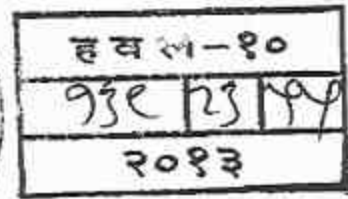 हवल-१०
१३९ २३ ५५
२०१३